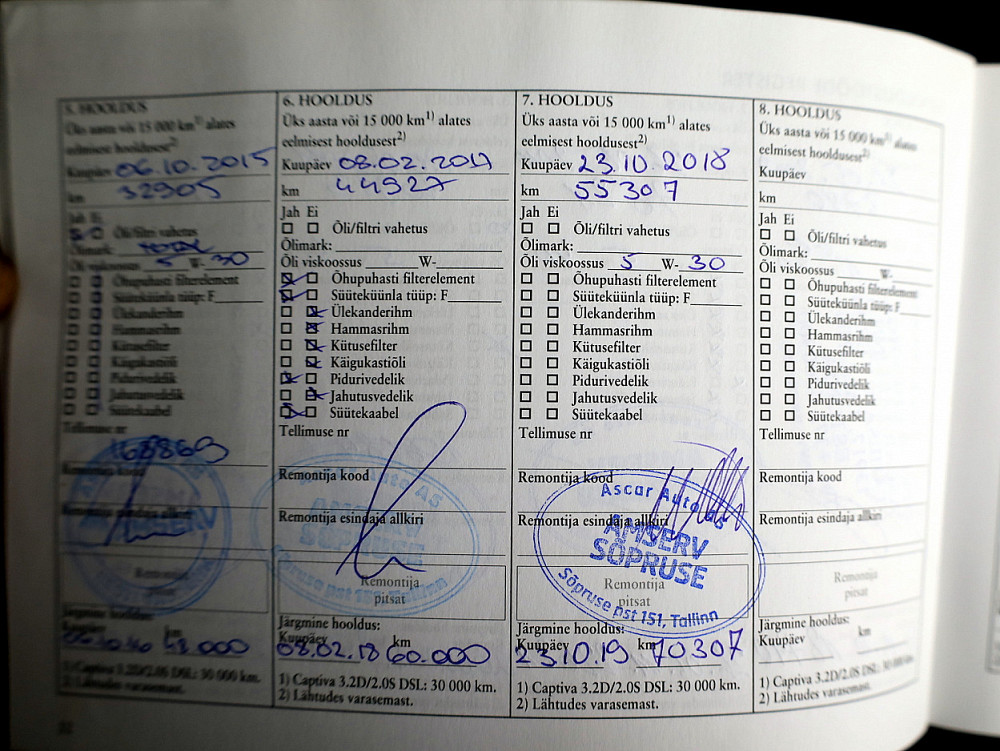 5. HOOLDUS
Üks aasta või 15 000 km1) alates
eelmisest hooldusest2)
Kuupäev 06.10.2015
km 32905
Jah Ei
Õli/filtri vahetus
Õlimark:
Õli viskoossus 5 W- 30
Õhupuhasti filterelement
Süüteküünla tüüp: F
Ülekanderihm
Hammasrihm
Kütusefilter
Käigukastiõli
Pidurivedelik
Jahutusvedelik
Süütekaabel
Tellimuse nr
Remontija kood
Remontija esindaja allkiri
Remontija
Järgmine hooldus:
Kuupäev km
48.000
1) Captiva 3.2D/2.0S DSL: 30 000 km.
2) Lähtudes varasemast.
6. HOOLDUS
Üks aasta või 15 000 km1) alates
eelmisest hooldusest2)
Kuupäev 08.02.2017
km 44927
Jah Ei
Õli/filtri vahetus
Õlimark:
Õli viskoossus W-
Õhupuhasti filterelement
Süüteküünla tüüp: F
Ülekanderihm
Hammasrihm
Kütusefilter
Käigukastiõli
Pidurivedelik
Jahutusvedelik
Süütekaabel
Tellimuse nr
Remontija kood
Auto AS
AMSERV
SÕPRUSE
Remontija esindaja allkiri
Remontija
pitsat
Järgmine hooldus:
Kuupäev km
08.02.18 60.000
1) Captiva 3.2D/2.0S DSL: 30 000 km.
2) Lähtudes varasemast.
7. HOOLDUS
Üks aasta või 15 000 km1) alates
eelmisest hooldusest2)
Kuupäev 23.10.2018
km 55307
Jah Ei
Õli/filtri vahetus
Õlimark:
Õli viskoossus 5 W- 30
Õhupuhasti filterelement
Süüteküünla tüüp: F
Ülekanderihm
Hammasrihm
Kütusefilter
Käigukastiõli
Pidurivedelik
Jahutusvedelik
Süütekaabel
Tellimuse nr
Remontija kood
Ascar Auto AS
Remontija esindaja allkiri
AMSERV
SÕPRUSE
Remontija
pitsat
Sõpruse pst 151, Tallinn
Järgmine hooldus:
Kuupäev km
23.10.19 70307
1) Captiva 3.2D/2.0S DSL: 30 000 km.
2) Lähtudes varasemast.
8. HOOLDUS
Üks aasta või 15 000 km1) alates
eelmisest hooldusest2)
Kuupäev
km
Jah Ei
Õli/filtri vahetus
Õlimark:
Õli viskoossus W-
Õhupuhasti filterelement
Süüteküünla tüüp: F
Ülekanderihm
Hammasrihm
Kütusefilter
Käigukastiõli
Pidurivedelik
Jahutusvedelik
Süütekaabel
Tellimuse nr
Remontija kood
Remontija esindaja allkiri
Remontija
pitsat
Järgmine hooldus:
Kuupäev km
1) Captiva 3.2D/2.0S DSL: 30 000 km.
2) Lähtudes varasemast.